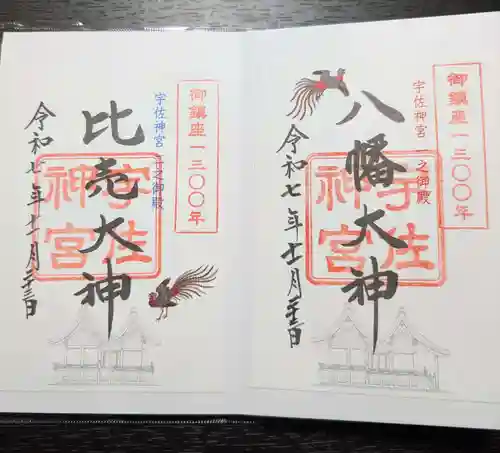 御鎮座一三〇〇年
宇佐神宮 一之御殿
八幡大神
宇佐神宮
令和七年十一月二十三日
御鎮座一三〇〇年
宇佐神宮 二之御殿
比売大神
宇佐神宮
令和七年十一月二十三日